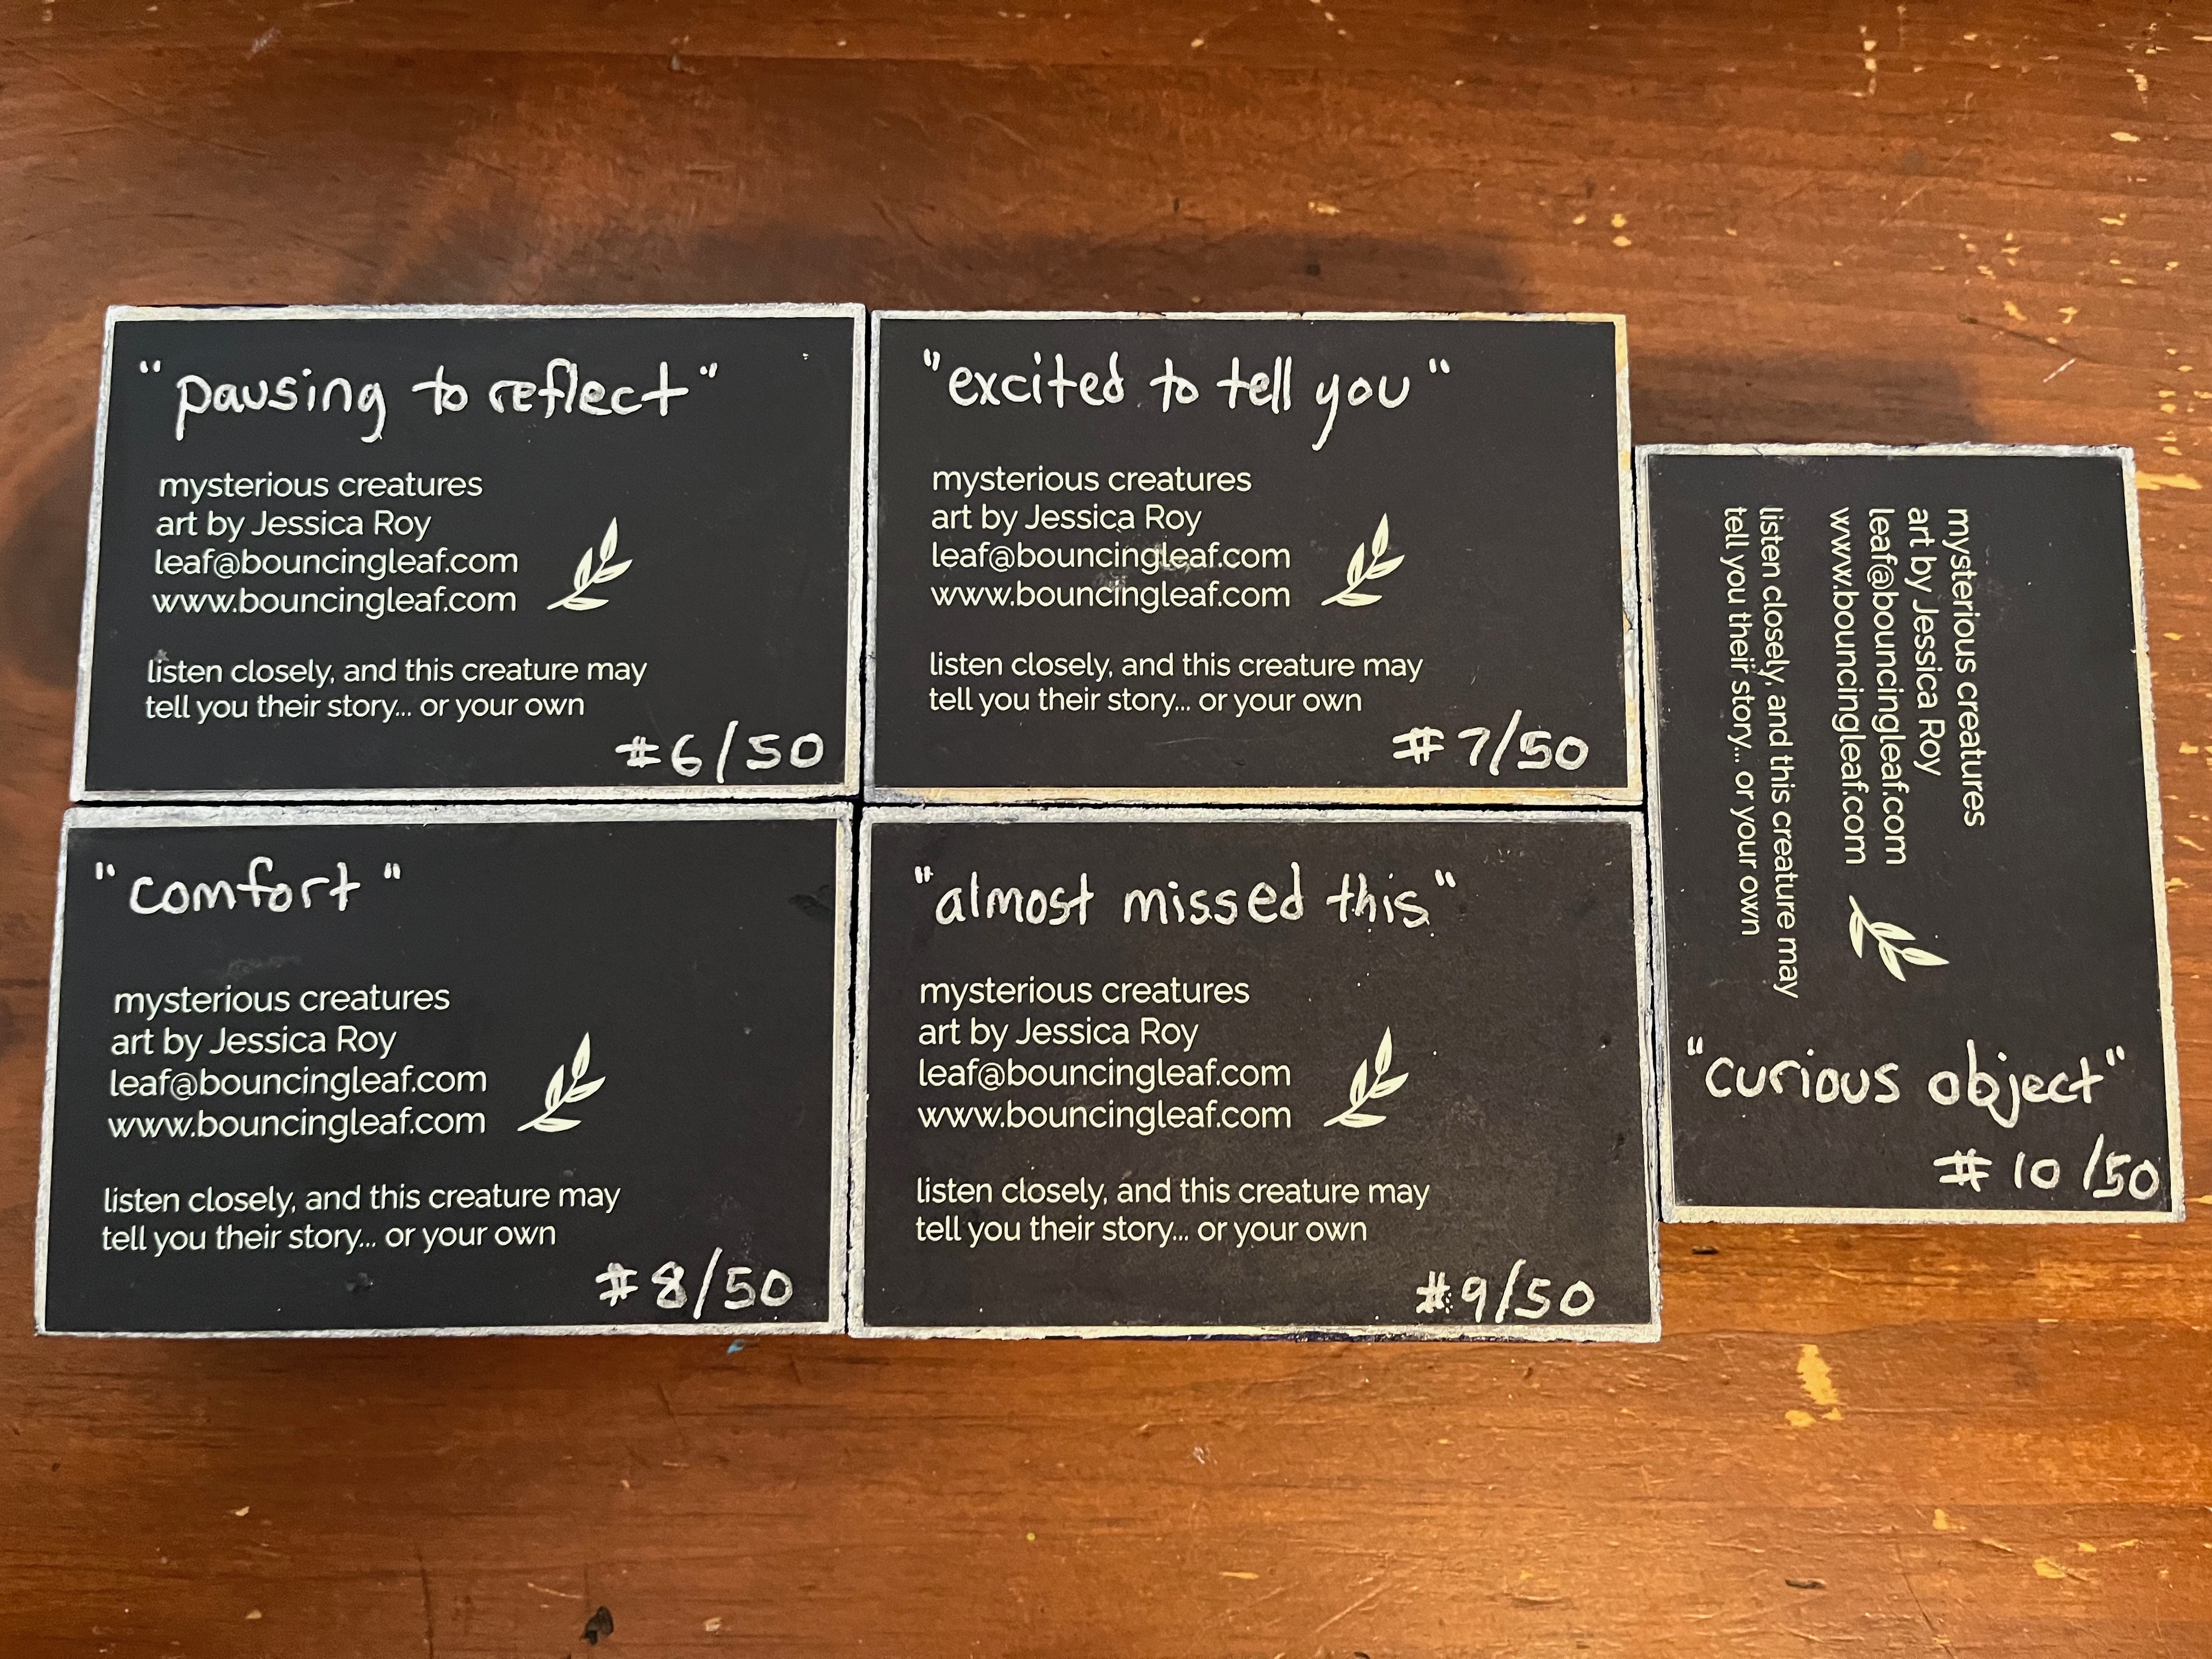 "pausing to reflect"
mysterious creatures
art by Jessica Roy
leaf@bouncingleaf.com
www.bouncingleaf.com
listen closely, and this creature may
tell you their story... or your own
#6/50
"excited to tell you"
mysterious creatures
art by Jessica Roy
leaf@bouncingleaf.com
www.bouncingleaf.com
listen closely, and this creature may
tell you their story... or your own
#7/50
"comfort"
mysterious creatures
art by Jessica Roy
leaf@bouncingleaf.com
www.bouncingleaf.com
listen closely, and this creature may
tell you their story... or your own
#8/50
"almost missed this"
mysterious creatures
art by Jessica Roy
leaf@bouncingleaf.com
www.bouncingleaf.com
listen closely, and this creature may
tell you their story... or your own
#9/50
mysterious creatures
art by Jessica Roy
leaf@bouncingleaf.com
www.bouncingleaf.com
listen closely, and this creature may
tell you their story... or your own
"curious object"
#10/50